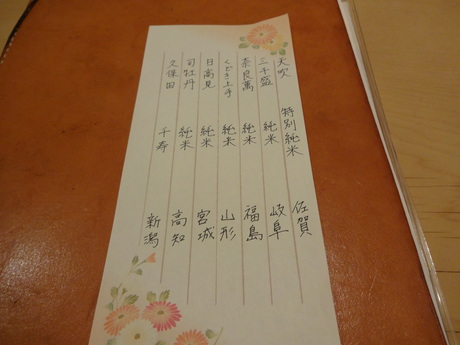 天吹 特別純米 佐賀
三千盛 純米 岐阜
奈良萬 純米 福島
くどき上手 純米 山形
日高見 純米 宮城
司牡丹 純米 高知
久保田 千寿 新潟